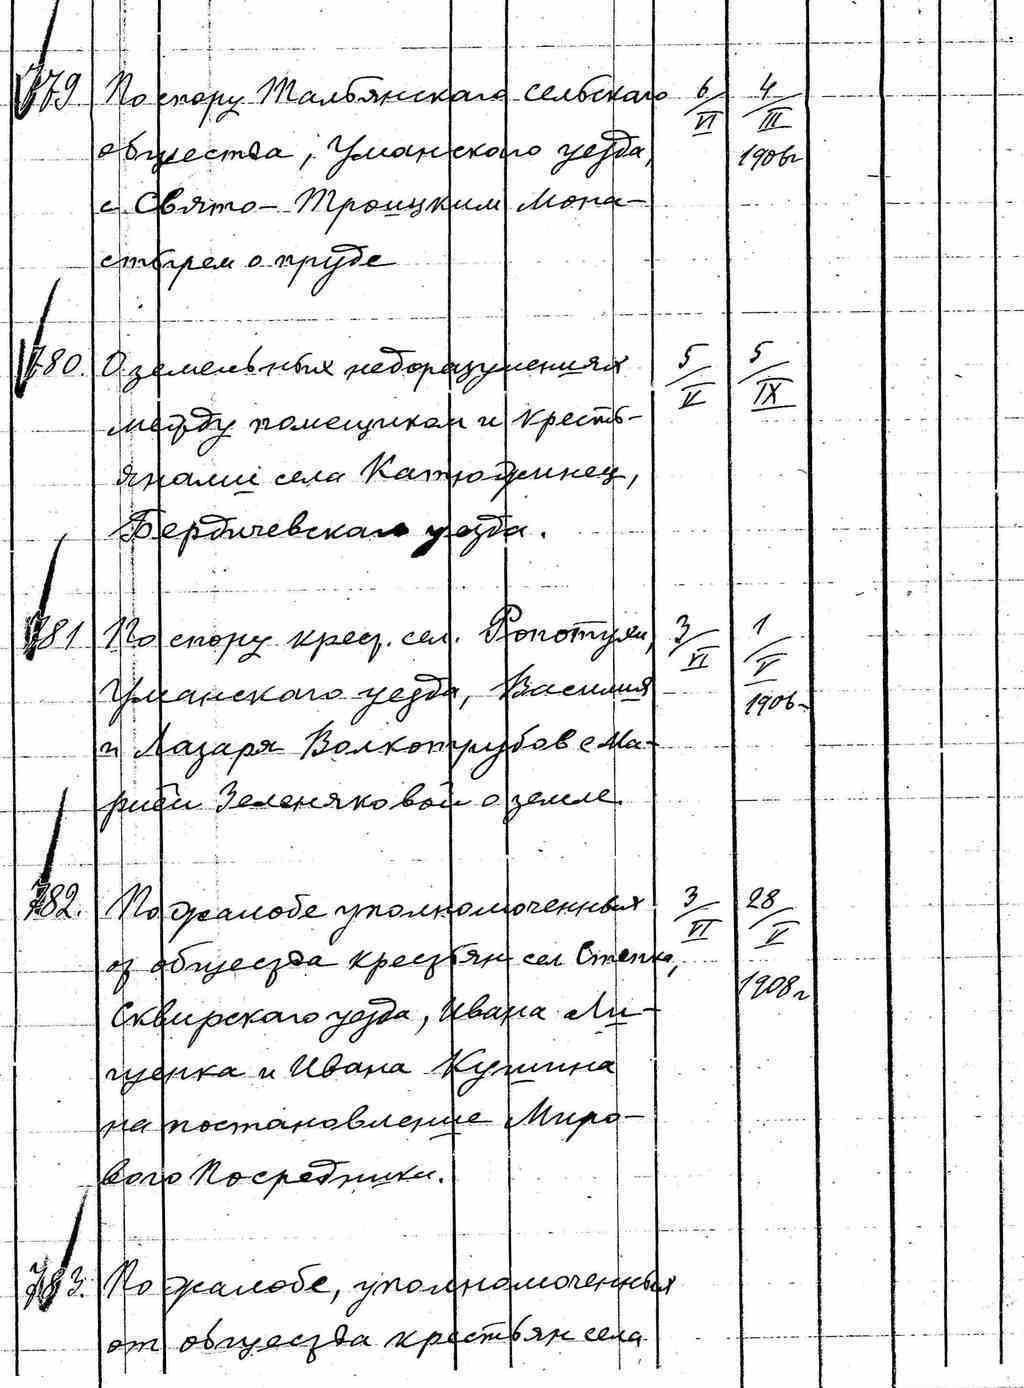 779 По спору Тальбянскаго сельскаго 6/VI 4/III
общества, Уманскаго уезда, 1906г
с Свято-Троицким Мона-
стырем о пруде
780. О земельных недоразумениях 5/V 5/IX
между помещиком и кресть-
янами села Катюжинец,
Бердичевскаго уезда.
781 По спору крест. сел. Ропотухи, 3/VI 1/V
Уманскаго уезда, Василия 1906-
и Лазаря Волкотрубов с Ма-
рией Зеленяковой о земле.
782. По жалобе уполномоченных 3/VI 28/V
от общества крестьян сел
Сквирскаго уезда, Ивана Ли- 1908г
щенка и Ивана Кушина
на постановление Миро-
вого Посредника.
783. По жалобе, уполномоченных
от общества крестьян села